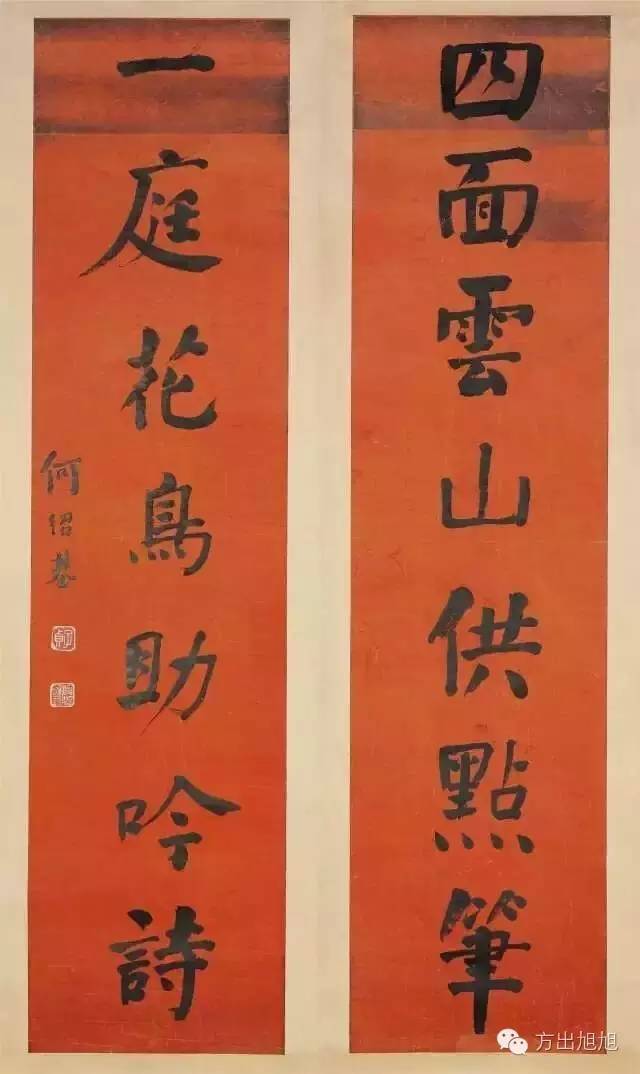 四面雲山供點筆
一庭花鳥助吟詩
何紹基
方出旭旭